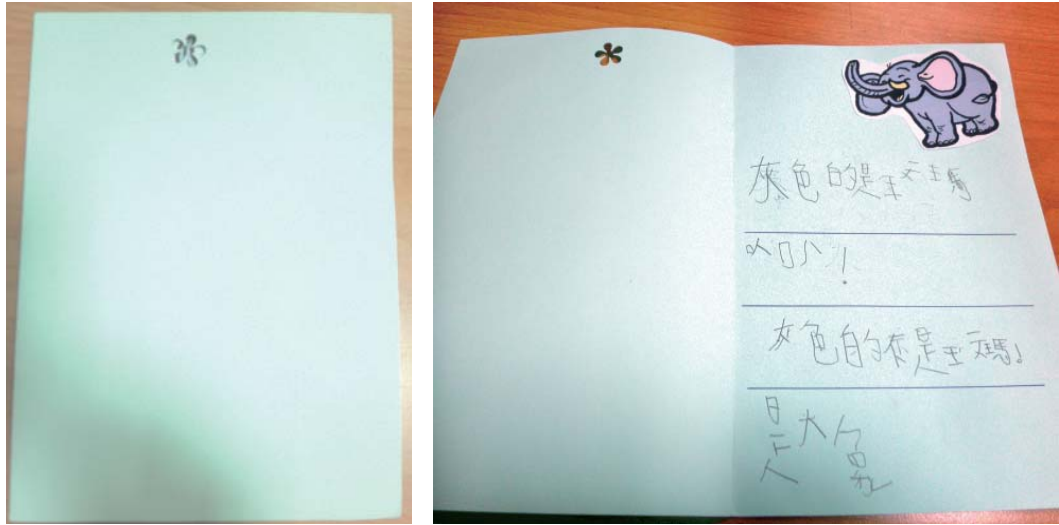 灰色的是斑馬
!
灰色的不是斑馬,
是大象